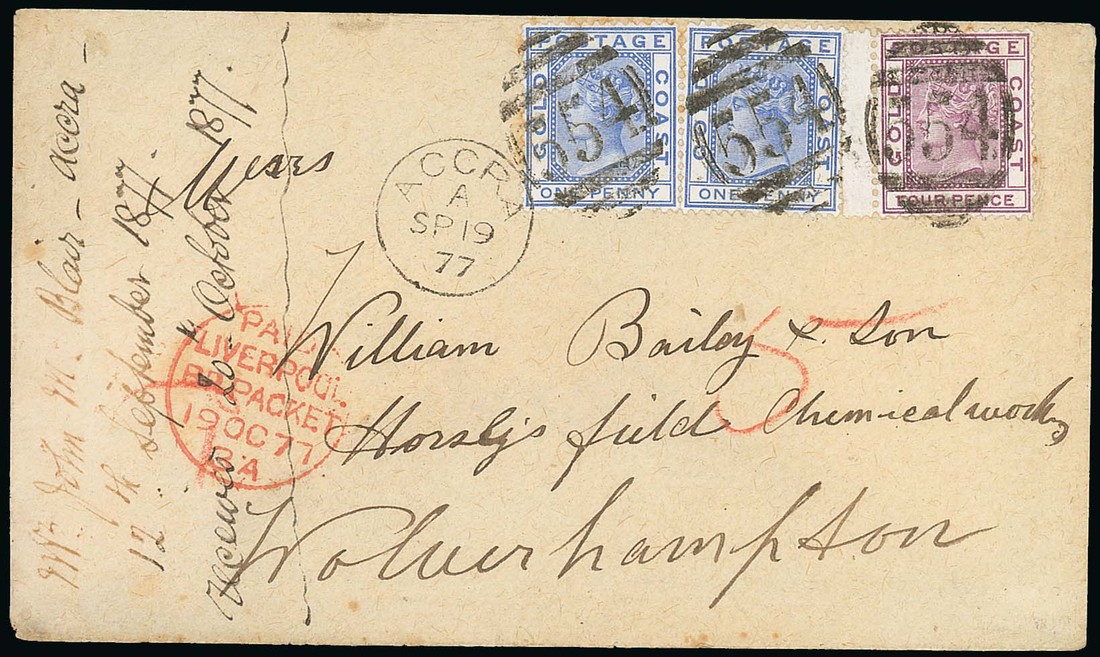 POSTAGE
GOLD
COAST
ONE PENNY
554
POSTAGE
G
OAST
ONE PENNY
554
POSTAGE
GOLD
COAST
FOUR PENCE
554
ACCRA
A
SP 19
77
Messrs
William Bailey & Son
Horsly's field Chemical works
Wolverhampton
PAID
LIVERPOOL
BR. PACKET
19 OC 77
5
Mr. John M. Blair - Accra -
12th September 1877.
received 20" October 1877.